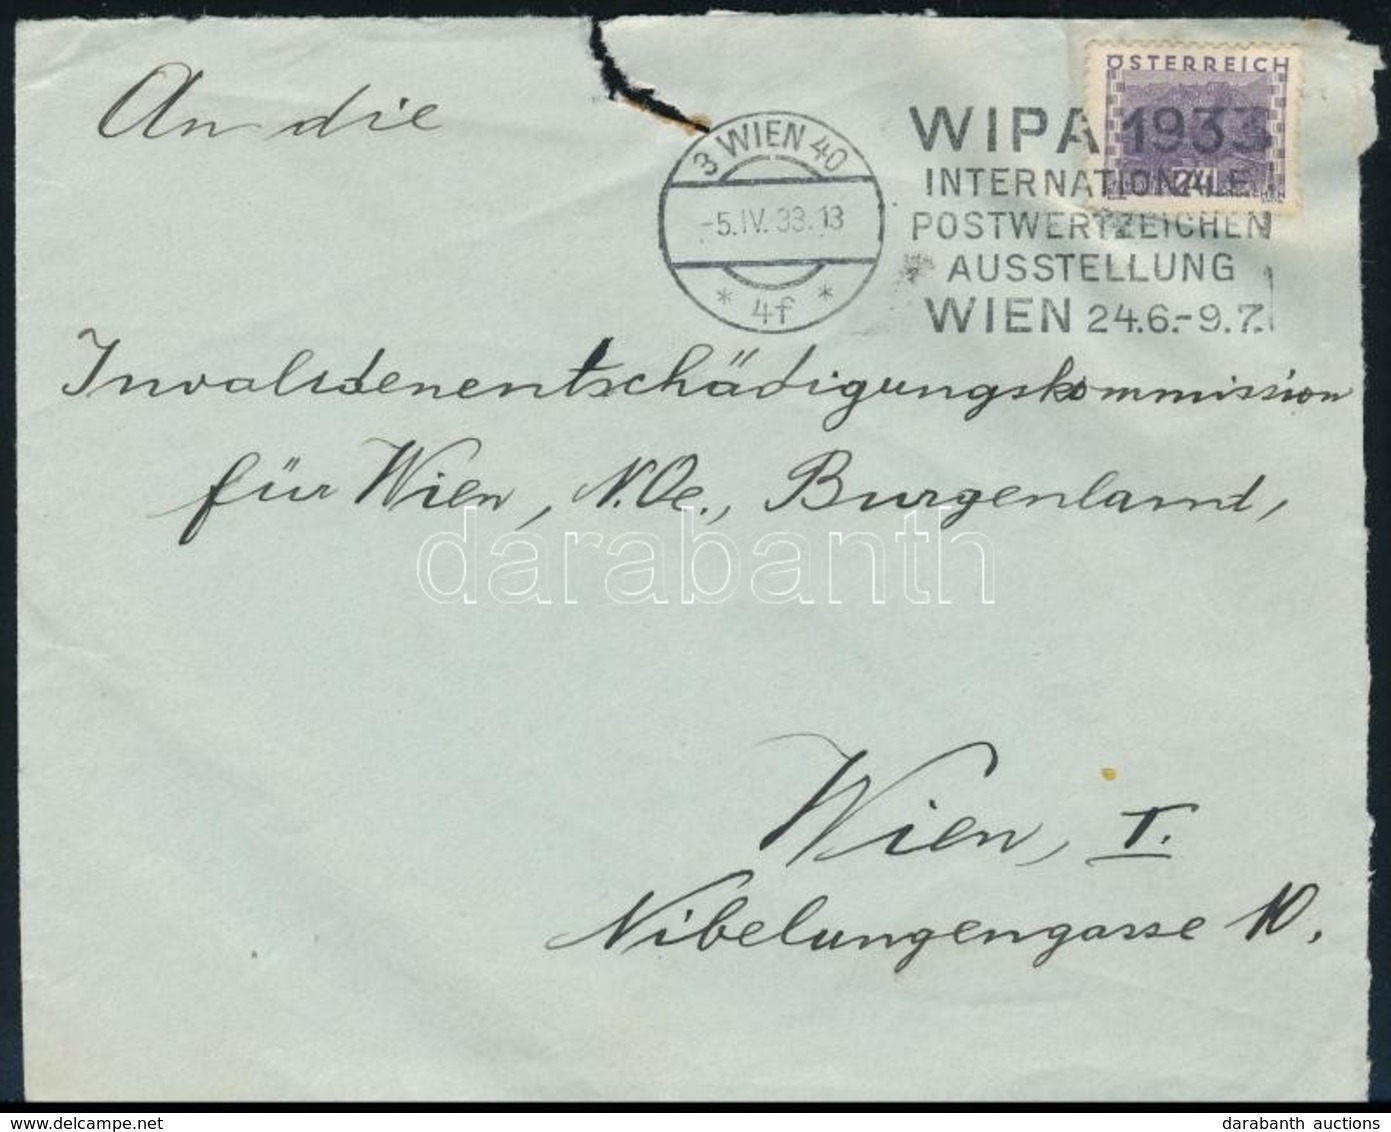 An die
ÖSTERREICH
24
3 WIEN 40
-5.IV.33.13
* 4f *
WIPA 1933
INTERNATIONALE
POSTWERTZEICHEN
AUSSTELLUNG
WIEN 24.6.-9.7.
Invalidenentschädigungskommission
für Wien, N.Oe., Burgenland,
darabanth
Wien, I.
Nibelungengasse 10.
darabanth auctions